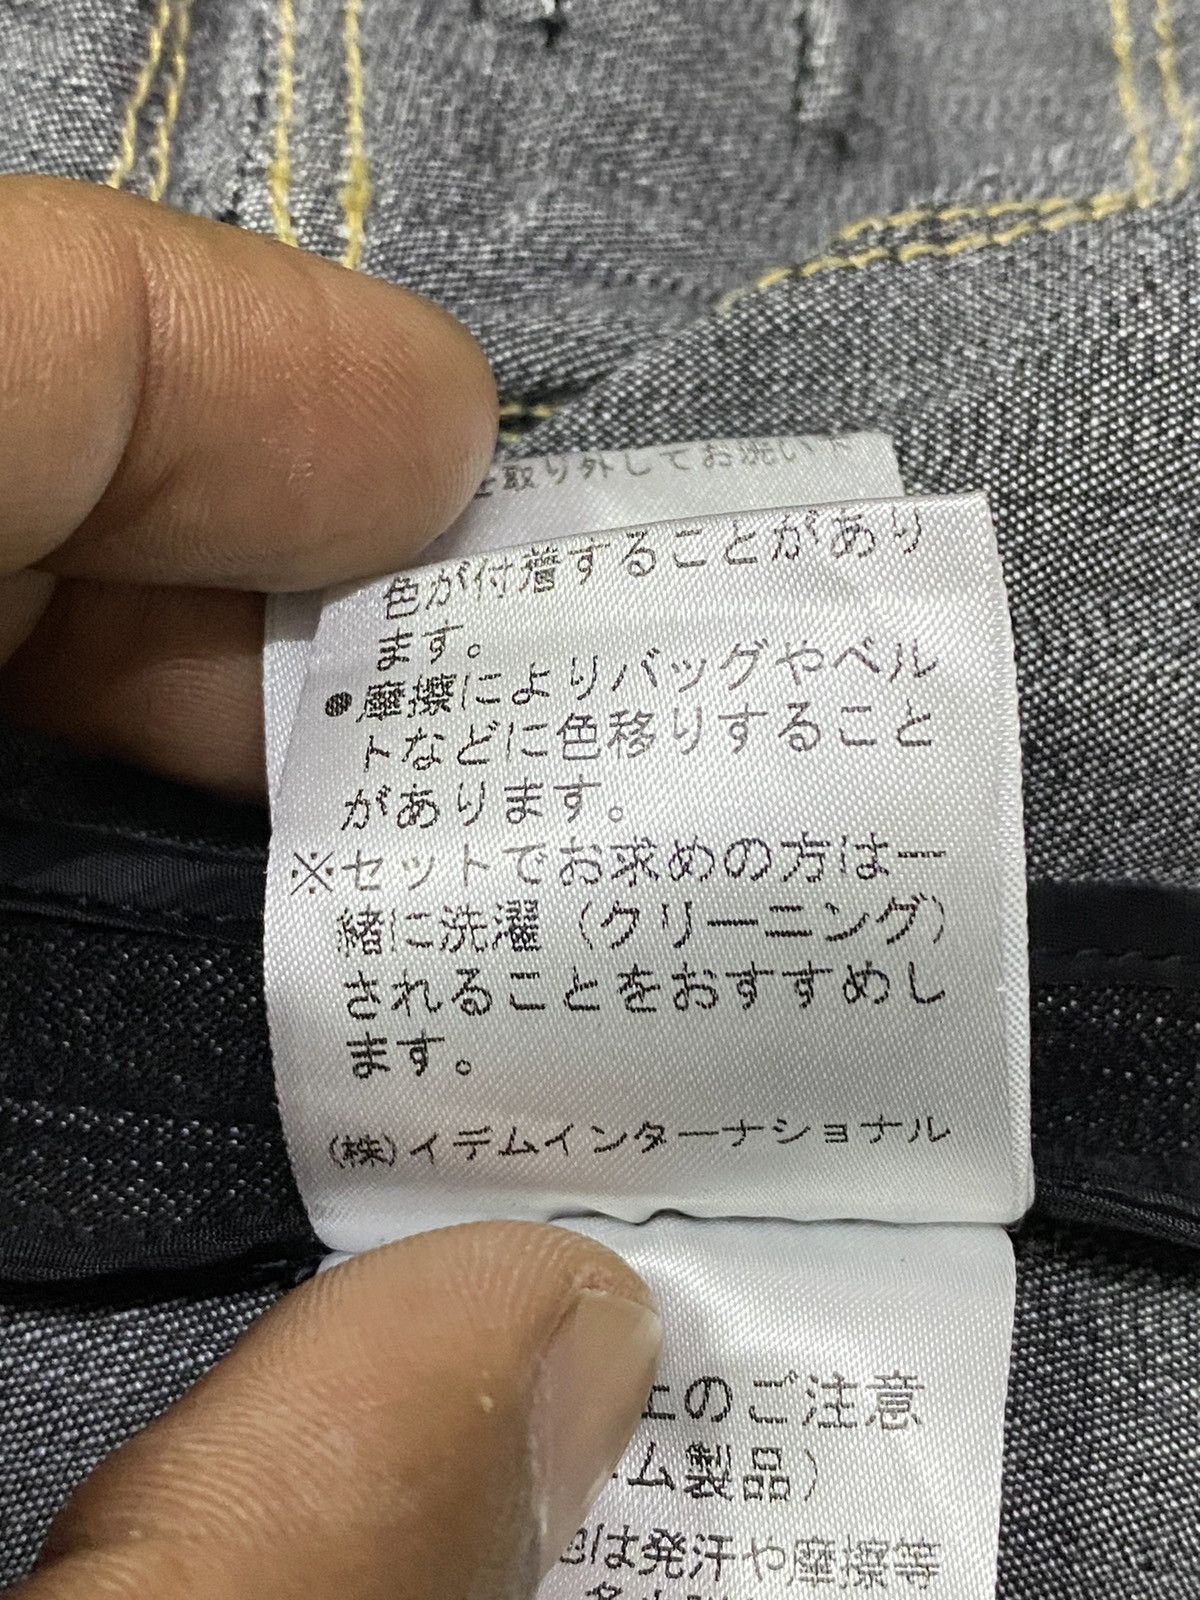 を取り外してお洗いくだ
色が付着することがあり
ます。
●摩擦によりバッグやベル
トなどに色移りすること
があります。
※セットでお求めの方は一
緒に洗濯（クリーニング）
されることをおすすめし
ます。
(株)イデムインターナショナル
上のご注意
ム製品）
色は発汗や摩擦等